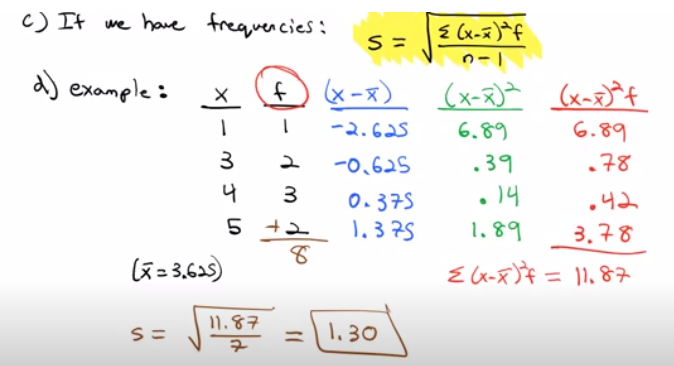 c) If we have frequencies: s = √(Σ(x-x̄)²f / n-1)
d) example: x f (x-x̄) (x-x̄)² (x-x̄)²f
1 1 -2.625 6.89 6.89
3 2 -0.625 .39 .78
4 3 0.375 .14 .42
5 +2 1.375 1.89 3.78
8
(x̄=3.625) Σ(x-x̄)²f = 11.87
s = √(11.87/7) = 1.30